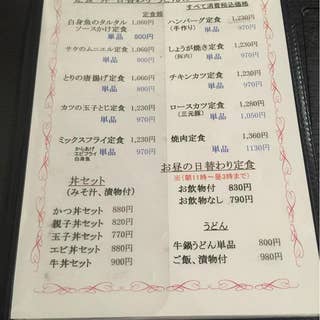 すべて消費税込価格
定食類
白身魚のタルタル 1,060円
ソースかけ定食
単品 800円
サケのムニエル定食
単品 970円
とりの唐揚げ定食
単品 970円
カツの玉子とじ定食
単品 970円
ミックスフライ定食
からあげ
エビフライ
白身魚
単品 970円
ハンバーグ定食 1,230円
(手作り) 単品 970円
しょうが焼き定食 1,230円
単品 970円
チキンカツ定食 1,230円
単品 970円
ロースカツ定食 1,310円
(三元豚) 単品 1050円
焼肉定食 1,360円
単品 1130円
お昼の日替わり定食
※(朝11時～昼3時まで)
お飲物付 830円
お飲物なし 790円
丼セット
(みそ汁、漬物付)
かつ丼セット 880円
親子丼セット 820円
玉子丼セット 770円
エビ丼セット 880円
牛丼セット 900円
うどん
牛鍋うどん単品 800円
ご飯、漬物付 980円